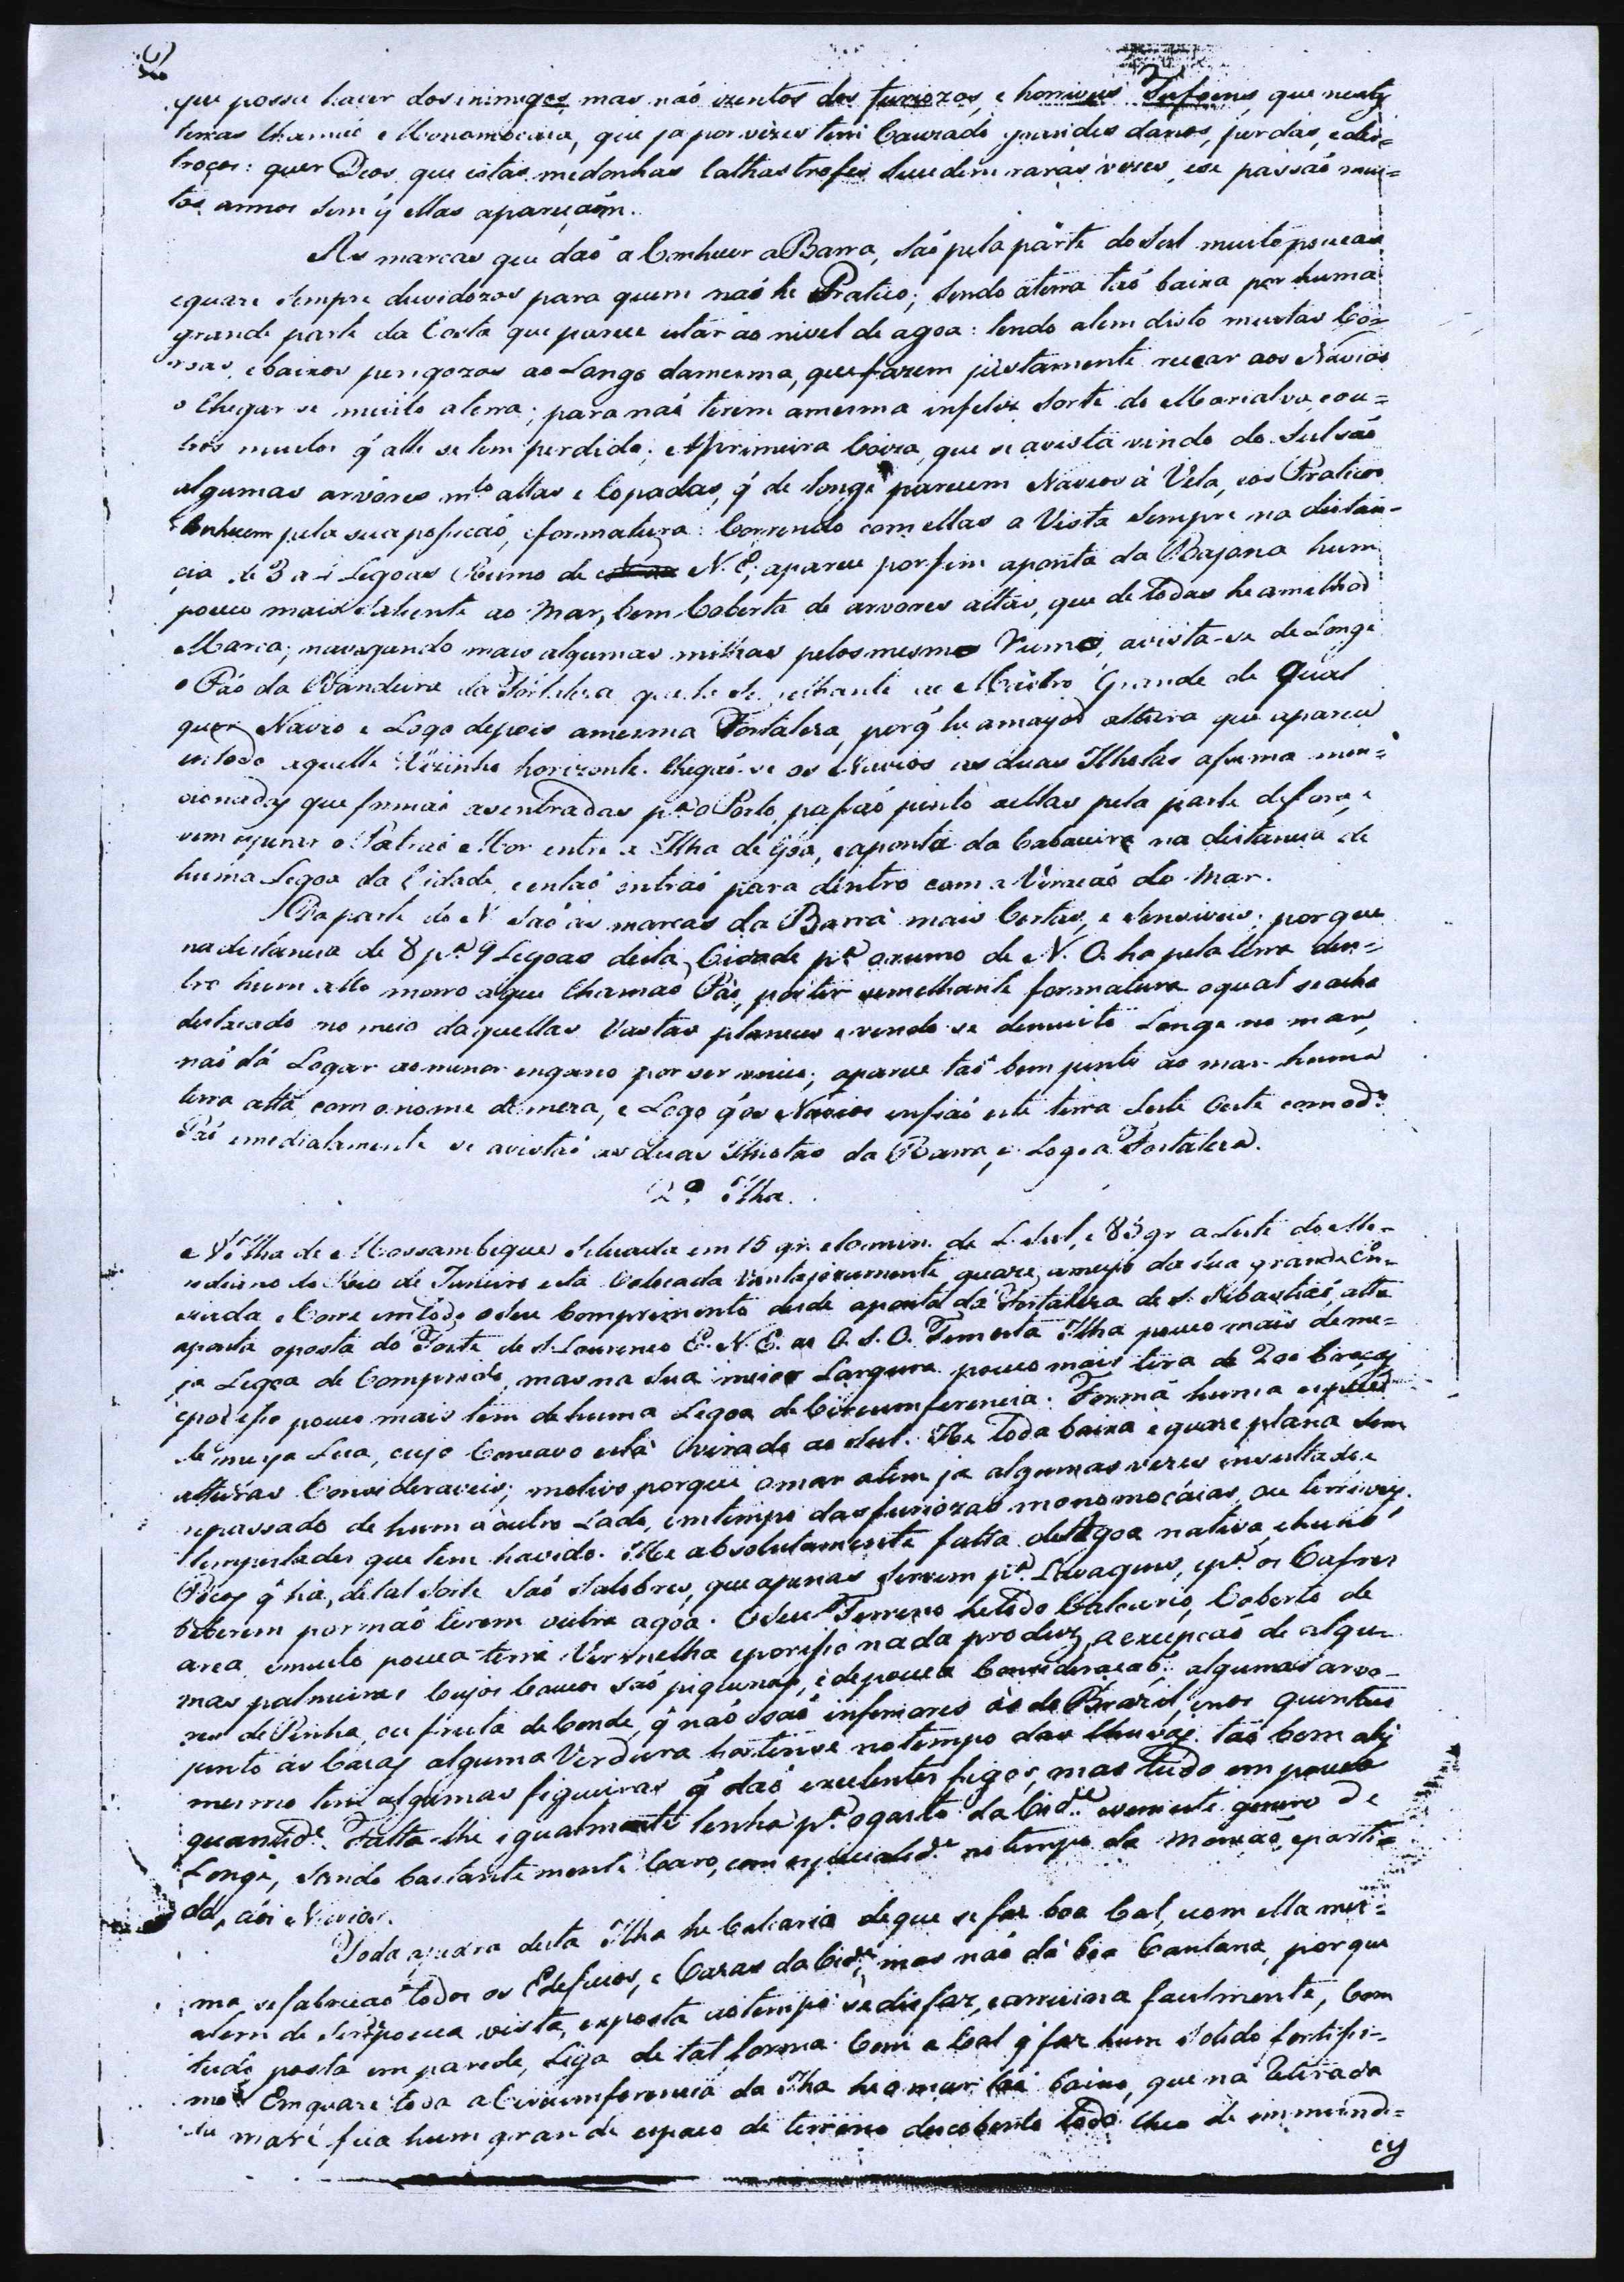 que possa haver dos inimigos, mas naó izentos dos furiozos, e horriveis Tufoens, que nestas
terras chamaó Monomocaia, que ja por vezes tem Cauzado grandes danos, perdas, e des=
troços: quer Deos, que estas medonhas Cathastrofes Sucedem raras vezes, e se passaó mui=
tos annos sem q̃ ellas apareçaóm.
As marcas que daó a Conhecer a Barra, saó pela parte do Sul muito poucas
e quaze sempre duvidozas para quem naó he Pratico; sendo a terra taó baixa por huma
grande parte da Costa que parece estar ao nivel de agoa: tendo alem disto muitas Co-
roas, e baixos perigozos ao Longo da mesma, que fazem justamente recear aos Navios
o Chegar se muito a terra; para naó terem a mesma infeliz Sorte do Marialva, e ou=
tros muitos q̃ alli se tem perdido; A primeira Coiza, que se avista vindo do Sul saó
algumas arvores m.to altas e Copadas, q̃ de longe parecem Navios à Vela, e os Praticos
Conhecem pela sua posicaó, e formatura: Correndo com ellas a Vista Sempre na distan-
cia de 3 a 4 Legoas Rumo de N. E, aparece por fim a ponta da Bajona hum
pouco mais saliente ao Mar, bem Coberta de arvores altas, que de todas he a melhor
Marca; navegando mais algumas milhas pelo mesmo Rumo, avista-se de Longe
o Páo da Bandeira da Fortaleza que he semelhante ao Mastro Grande de qual
quer Navio e Logo depois a mesma Fortaleza, porq̃ he a mayor altura que aparece
em todo aquelle Vizinho horizonte. Chegaó-se os Navios as duas Ilhotas asima men=
cionadas que formaó as entradas p.a o Porto, passaó junto a ellas pela parte de fora, e
vem esperar o Patraó Mor entre a Ilha de Goa, e a ponta da Cabaceira na distancia de
huma Legoa da Cidade, e entaó entraó para dentro com a Viraçaó do Mar.
Da parte do N. saó as marcas da Barra mais Certas, e Sensiveis; porque
na distancia de 8 p.a 9 Legoas desta Cidade p.a o rumo de N. O. ha pela terra den=
tro hum alto morro a que Chamaó Páo, por ter semelhante formatura o qual se acha
destacado no meio daquellas Vastas planices e vendo se de muito Longe no mar,
naó dá Logar ao menor engano por ser unico; aparece taó bem junto ao mar huma
terra alta com o nome de meza, e Logo q̃ os Navios enfiaó esta terra Leste Oeste com o d.o
Páo imediatamente se avistaó as duas Ilhotas da Barra, e Logo a Fortaleza.
2.ª Ilha.
A Ilha de Mossambique Situada em 15 gr. e 1 o min. de L. Sul, e 83 gr a Leste do Me-
ridiano do Rio de Janeiro esta Colocada Vantajozamente quaze a meyo da sua grande En-
seada e Corre em todo o seu Comprimento desde a ponta da Fortaleza de S. Sebastiaó, athe
a ponta oposta do Forte de S. Lourenco E. N. E. ao O. S. O. Tem esta Ilha pouco mais de me=
ja Legoa de Comprido, mas na sua maior Largura pouco mais tera de 200 braças
e por isso pouco mais tem de huma Legoa de Circumferencia. Forma huma especie
de meya Lua, cujo Concavo está virado ao Sul. He toda baixa e quaze plana sem
alturas Consideraveis; motivo porque o mar a tem ja algumas vezes insultado e
repassado de hum a outro Lado, em tempo das furiozas monomocáias, ou terriveis
tempestades que tem havido. He absolutamente falta de Agoa nativa, e huns
Pocos q̃ ha, de tal sorte saó salobres, que apenas Servem p.a Lavagens, e p.a os Cafres
beberem por naó terem outra agoa. O seu Terreno he todo Calcario, Coberto de
area, e muito pouca terra Vermelha e por isso nada produz, a excepcaó de algu-
mas palmeiras Cujos Cocos saó piquenos, e de pouca Consideraçaó; algumas arvo-
res de Pinha, ou fructa de Conde, q̃ naó saó inferiores ás do Brazil, e nos quintaes
junto ás Cazas alguma Verdura hortense no tempo das Chuvas, taó bem ali
mesmo tem algumas figueiras q̃ daó excelentes figos, mas tudo em pouca
quantid.e Falta-lhe igualmente lenha p.a o gasto da Cid.e e vem este genero de
Longe, sendo bastantemente Caro, com especialid.e no tempo da monçaó, e parti=
da, dos Navios.
Toda a pedra desta Ilha he Calcaria de que se faz boa Cal, e com ella mes=
ma se fabricaó todos os Edeficios, e Cazas da Cid.e; mas naó dá boa Cantaria, porque
alem de ser pouca vista, exposta ao tempo se disfaz, e arruina facilmente, Com
tudo posta em parede, Liga de tal forma Com a Cal q̃ faz hum solido fortissi-
mo. Em quaze toda a Circumferencia da Ilha he o mar taó baixo, que na Retirada
da maré, fica hum grande espaco de terreno descoberto todo cheo de immundi=
cy